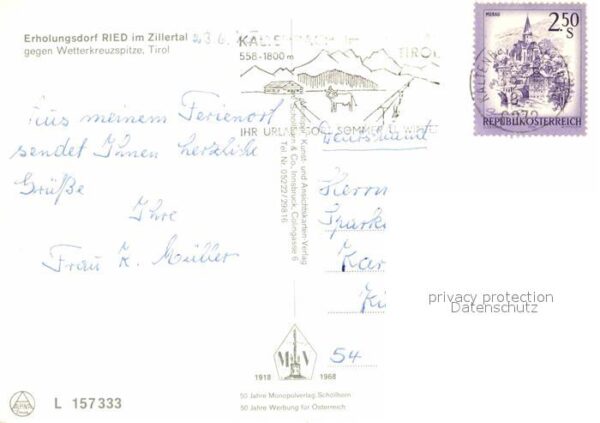 Erholungsdorf RIED im Zillertal
gegen Wetterkreuzspitze, Tirol
KALTENBACH
558-1800 m
TIROL
IHR URLAUBSZIEL SOMMER U. WINTER
MURAU
2.50 S
REPUBLIK ÖSTERREICH
Aus meinem Ferienort
sendet Ihnen herzliche
Grüße
Ihre
Frau K. Müller
Kunst- und Ansichtskarten-Verlag
Schöllhorn & Co., Innsbruck, Colingasse 6
Tel. Nr. 05222/29816
Deutschland
Herrn
Spark
Kar
54
privacy protection
Datenschutz
M V
1918 1968
50 Jahre Monopolverlag Schöllhorn
50 Jahre Werbung für Österreich
ALPINA
L 157333